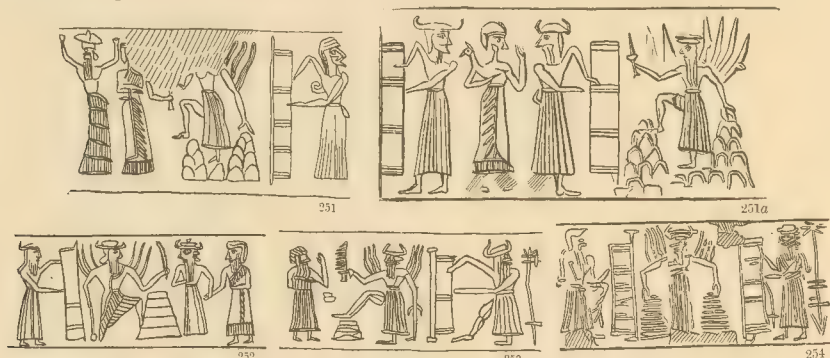 251
251a
252
253
254